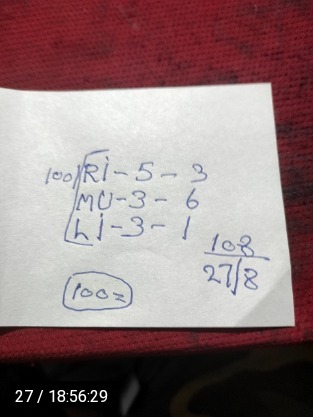 100 RI-5-3
MU-3-6
LI-3-1
108
27/8
100=
27 / 18:56:29